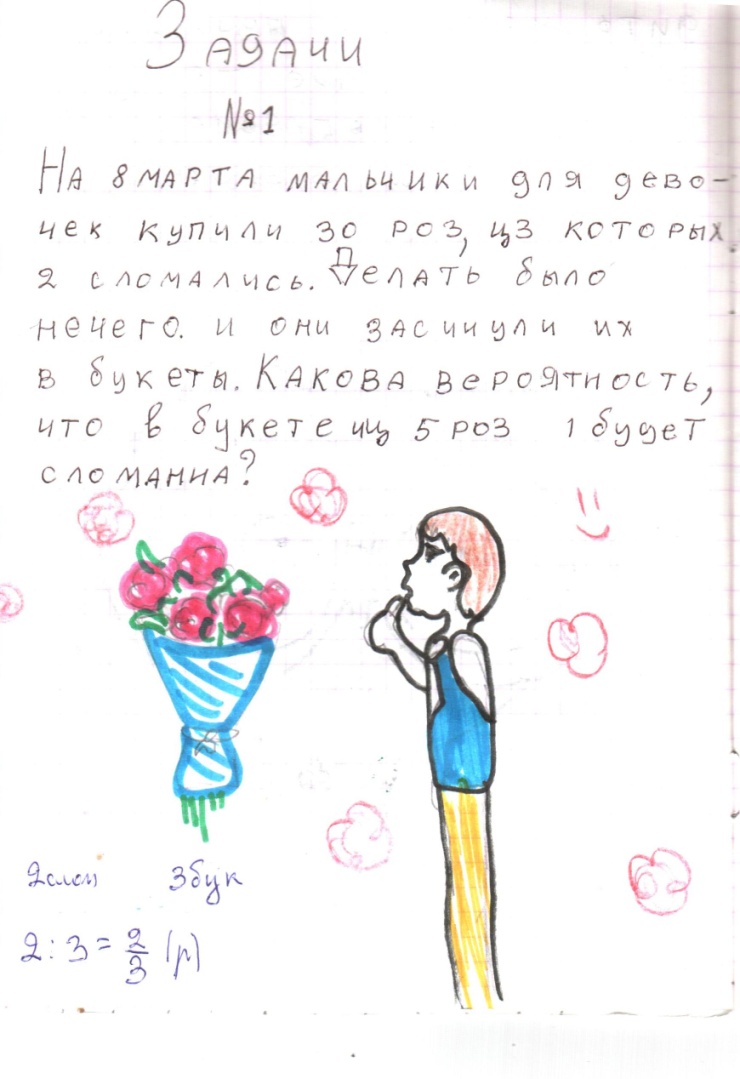 Задачи
№1
На 8 марта мальчики для дево-
чек купили 30 роз, из которых
2 сломались. Делать было
нечего. и они засунули их
в букеты. Какова вероятность,
что в букете из 5 роз 1 будет
сломанна?
2 слом 3 бук
2:3=2/3 (р)